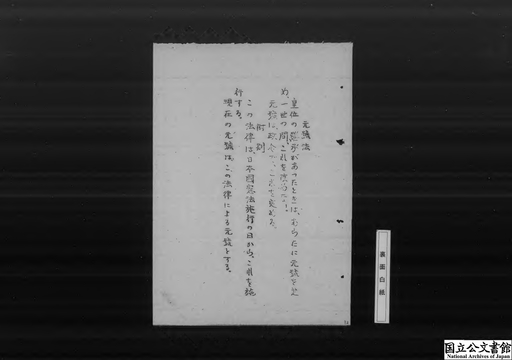 元号法
皇位の継承があつたときは、あらたに元号を定
め、一世の間、これを改めない。
元号は、政令で、これを定める。
附則
この法律は、日本国憲法施行の日から、これを施
行する。
現在の元号は、この法律による元号とする。
裏面白紙
国立公文書館
National Archives of Japan